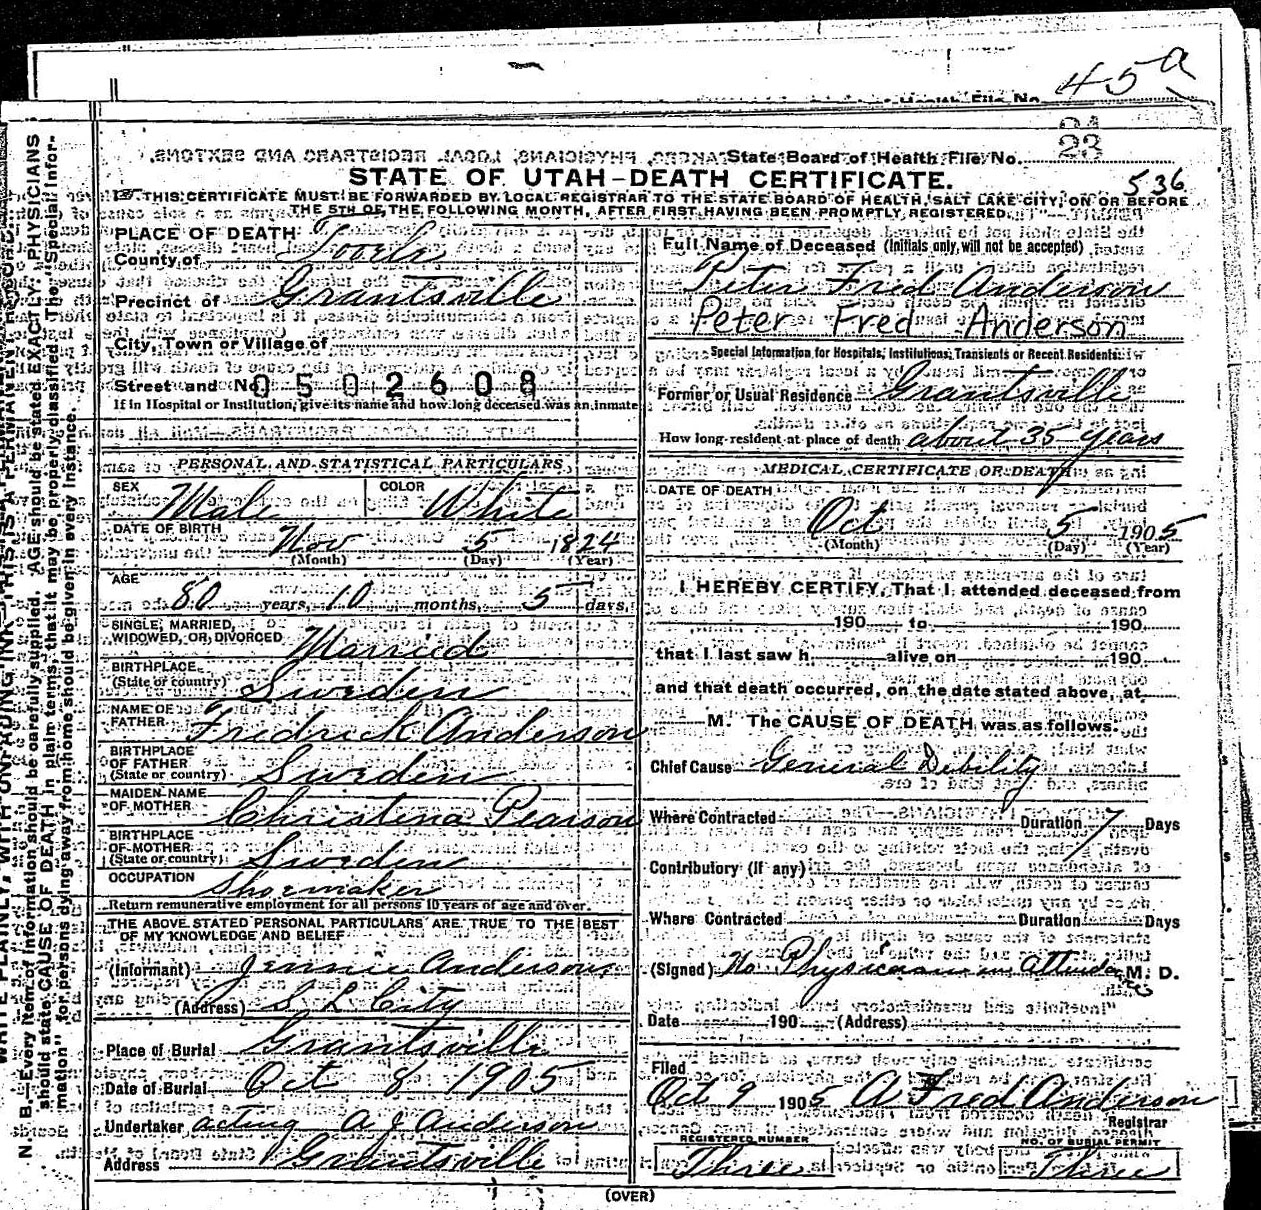 45a
Health File No.
24
State Board of Health File No. 23
STATE OF UTAH—DEATH CERTIFICATE.
536
THIS CERTIFICATE MUST BE FORWARDED BY LOCAL REGISTRAR TO THE STATE BOARD OF HEALTH, SALT LAKE CITY, ON OR BEFORE
THE 5TH OF THE FOLLOWING MONTH, AFTER FIRST HAVING BEEN PROMPTLY REGISTERED.
PLACE OF DEATH
County of Tooele
Precinct of Grantsville
City, Town or Village of
Street and No. 0502608
If in Hospital or Institution, give its name and how long deceased was an inmate
PERSONAL AND STATISTICAL PARTICULARS
SEX Male COLOR White
DATE OF BIRTH Nov 5 1824
(Month) (Day) (Year)
AGE 80 years, 10 months, 5 days
SINGLE, MARRIED,
WIDOWED, OR DIVORCED Married
BIRTHPLACE
(State or country) Sweden
NAME OF
FATHER Fredrick Anderson
BIRTHPLACE
OF FATHER
(State or country) Sweden
MAIDEN NAME
OF MOTHER Christina Pearson
BIRTHPLACE
OF MOTHER
(State or country) Sweden
OCCUPATION Shoemaker
Return remunerative employment for all persons 10 years of age and over.
THE ABOVE STATED PERSONAL PARTICULARS ARE TRUE TO THE BEST
OF MY KNOWLEDGE AND BELIEF
(Informant) Jennie Anderson
(Address) S L City
Place of Burial Grantsville
Date of Burial Oct 8 1905
Undertaker acting A J Anderson
Address Grantsville
Full Name of Deceased (Initials only, will not be accepted)
Peter Fred Anderson
Peter Fred Anderson
Special Information for Hospitals, Institutions, Transients or Recent Residents:
Former or Usual Residence Grantsville
How long resident at place of death about 35 years
MEDICAL CERTIFICATE OF DEATH
DATE OF DEATH
Oct 5 1905
(Month) (Day) (Year)
I HEREBY CERTIFY, That I attended deceased from
190 to 190
that I last saw h alive on 190
and that death occurred, on the date stated above, at
M. The CAUSE OF DEATH was as follows.
Chief Cause General Debility
Where Contracted Duration 7 Days
Contributory (If any)
Where Contracted Duration Days
(Signed) No Physician in attendance M. D.
Date 190 (Address)
Filed
Oct 9 1905 A Fred Anderson
Registrar
REGISTERED NUMBER NO. OF BURIAL PERMIT
Three Three
(OVER)
N. B.—Every item of information should be carefully supplied. AGE should be stated EXACTLY. PHYSICIANS
should state CAUSE OF DEATH in plain terms, that it may be properly classified. The "Special Infor-
mation" for persons dying away from home should be given in every instance.